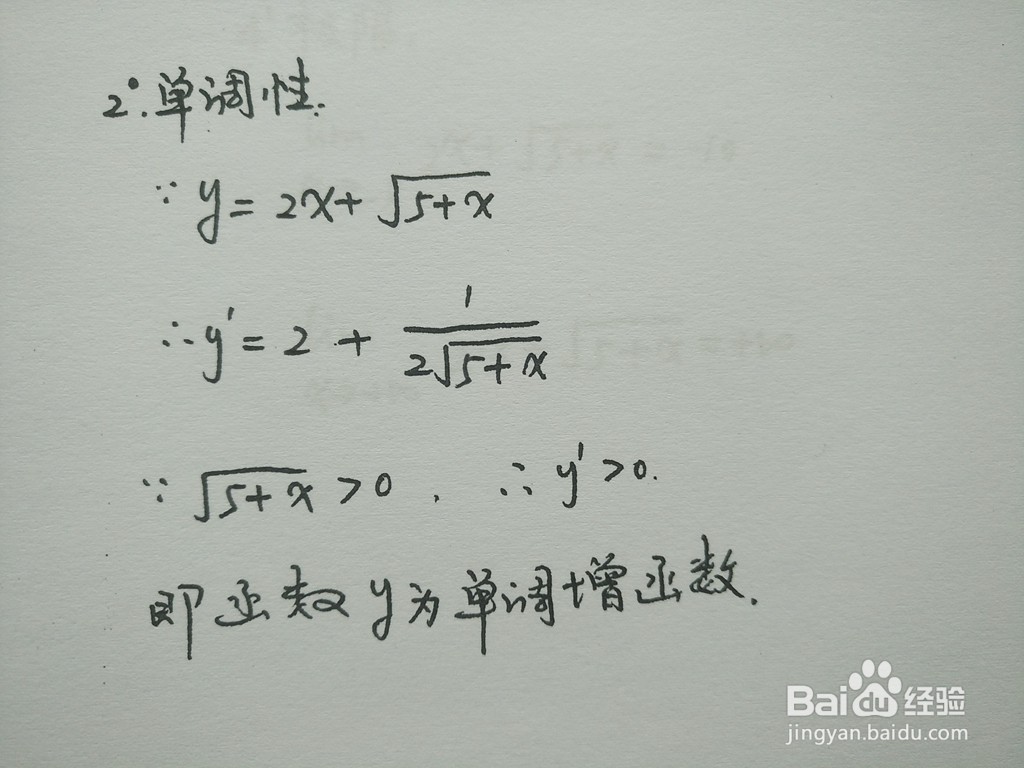 2°.单调性.
∵ y = 2x + √(5+x)
∴ y' = 2 + 1/(2√(5+x))
∵ √(5+x) > 0 . ∴ y' > 0.
即函数 y 为单调增函数.
Bai du 经验
jingyan.baidu.com